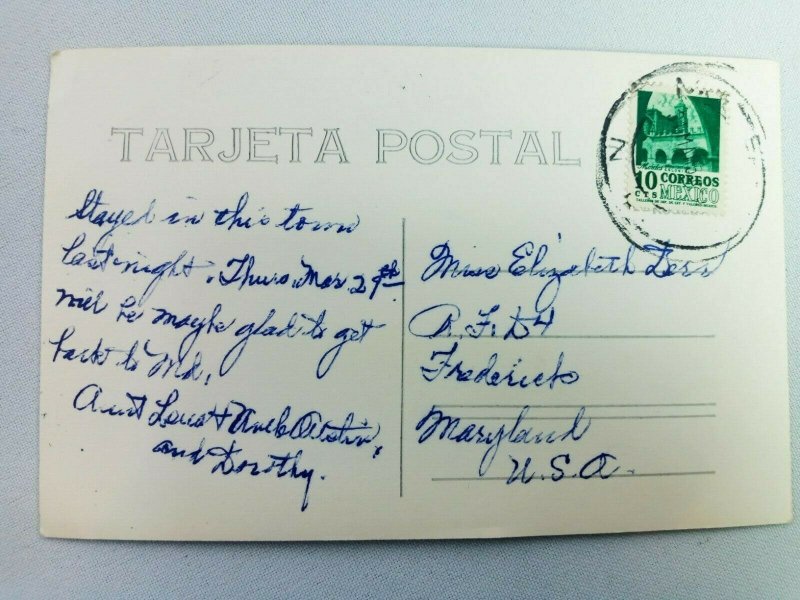 TARJETA POSTAL
Stayed in this town
last night. Thurs. Mar 29th
will be maybe glad to get
back to Md.
Aunt & Uncle
and Dorothy.
10 CORREOS
CTS MEXICO
Miss Elizabeth
R.F.D 4
Frederick
Maryland
U.S.A.